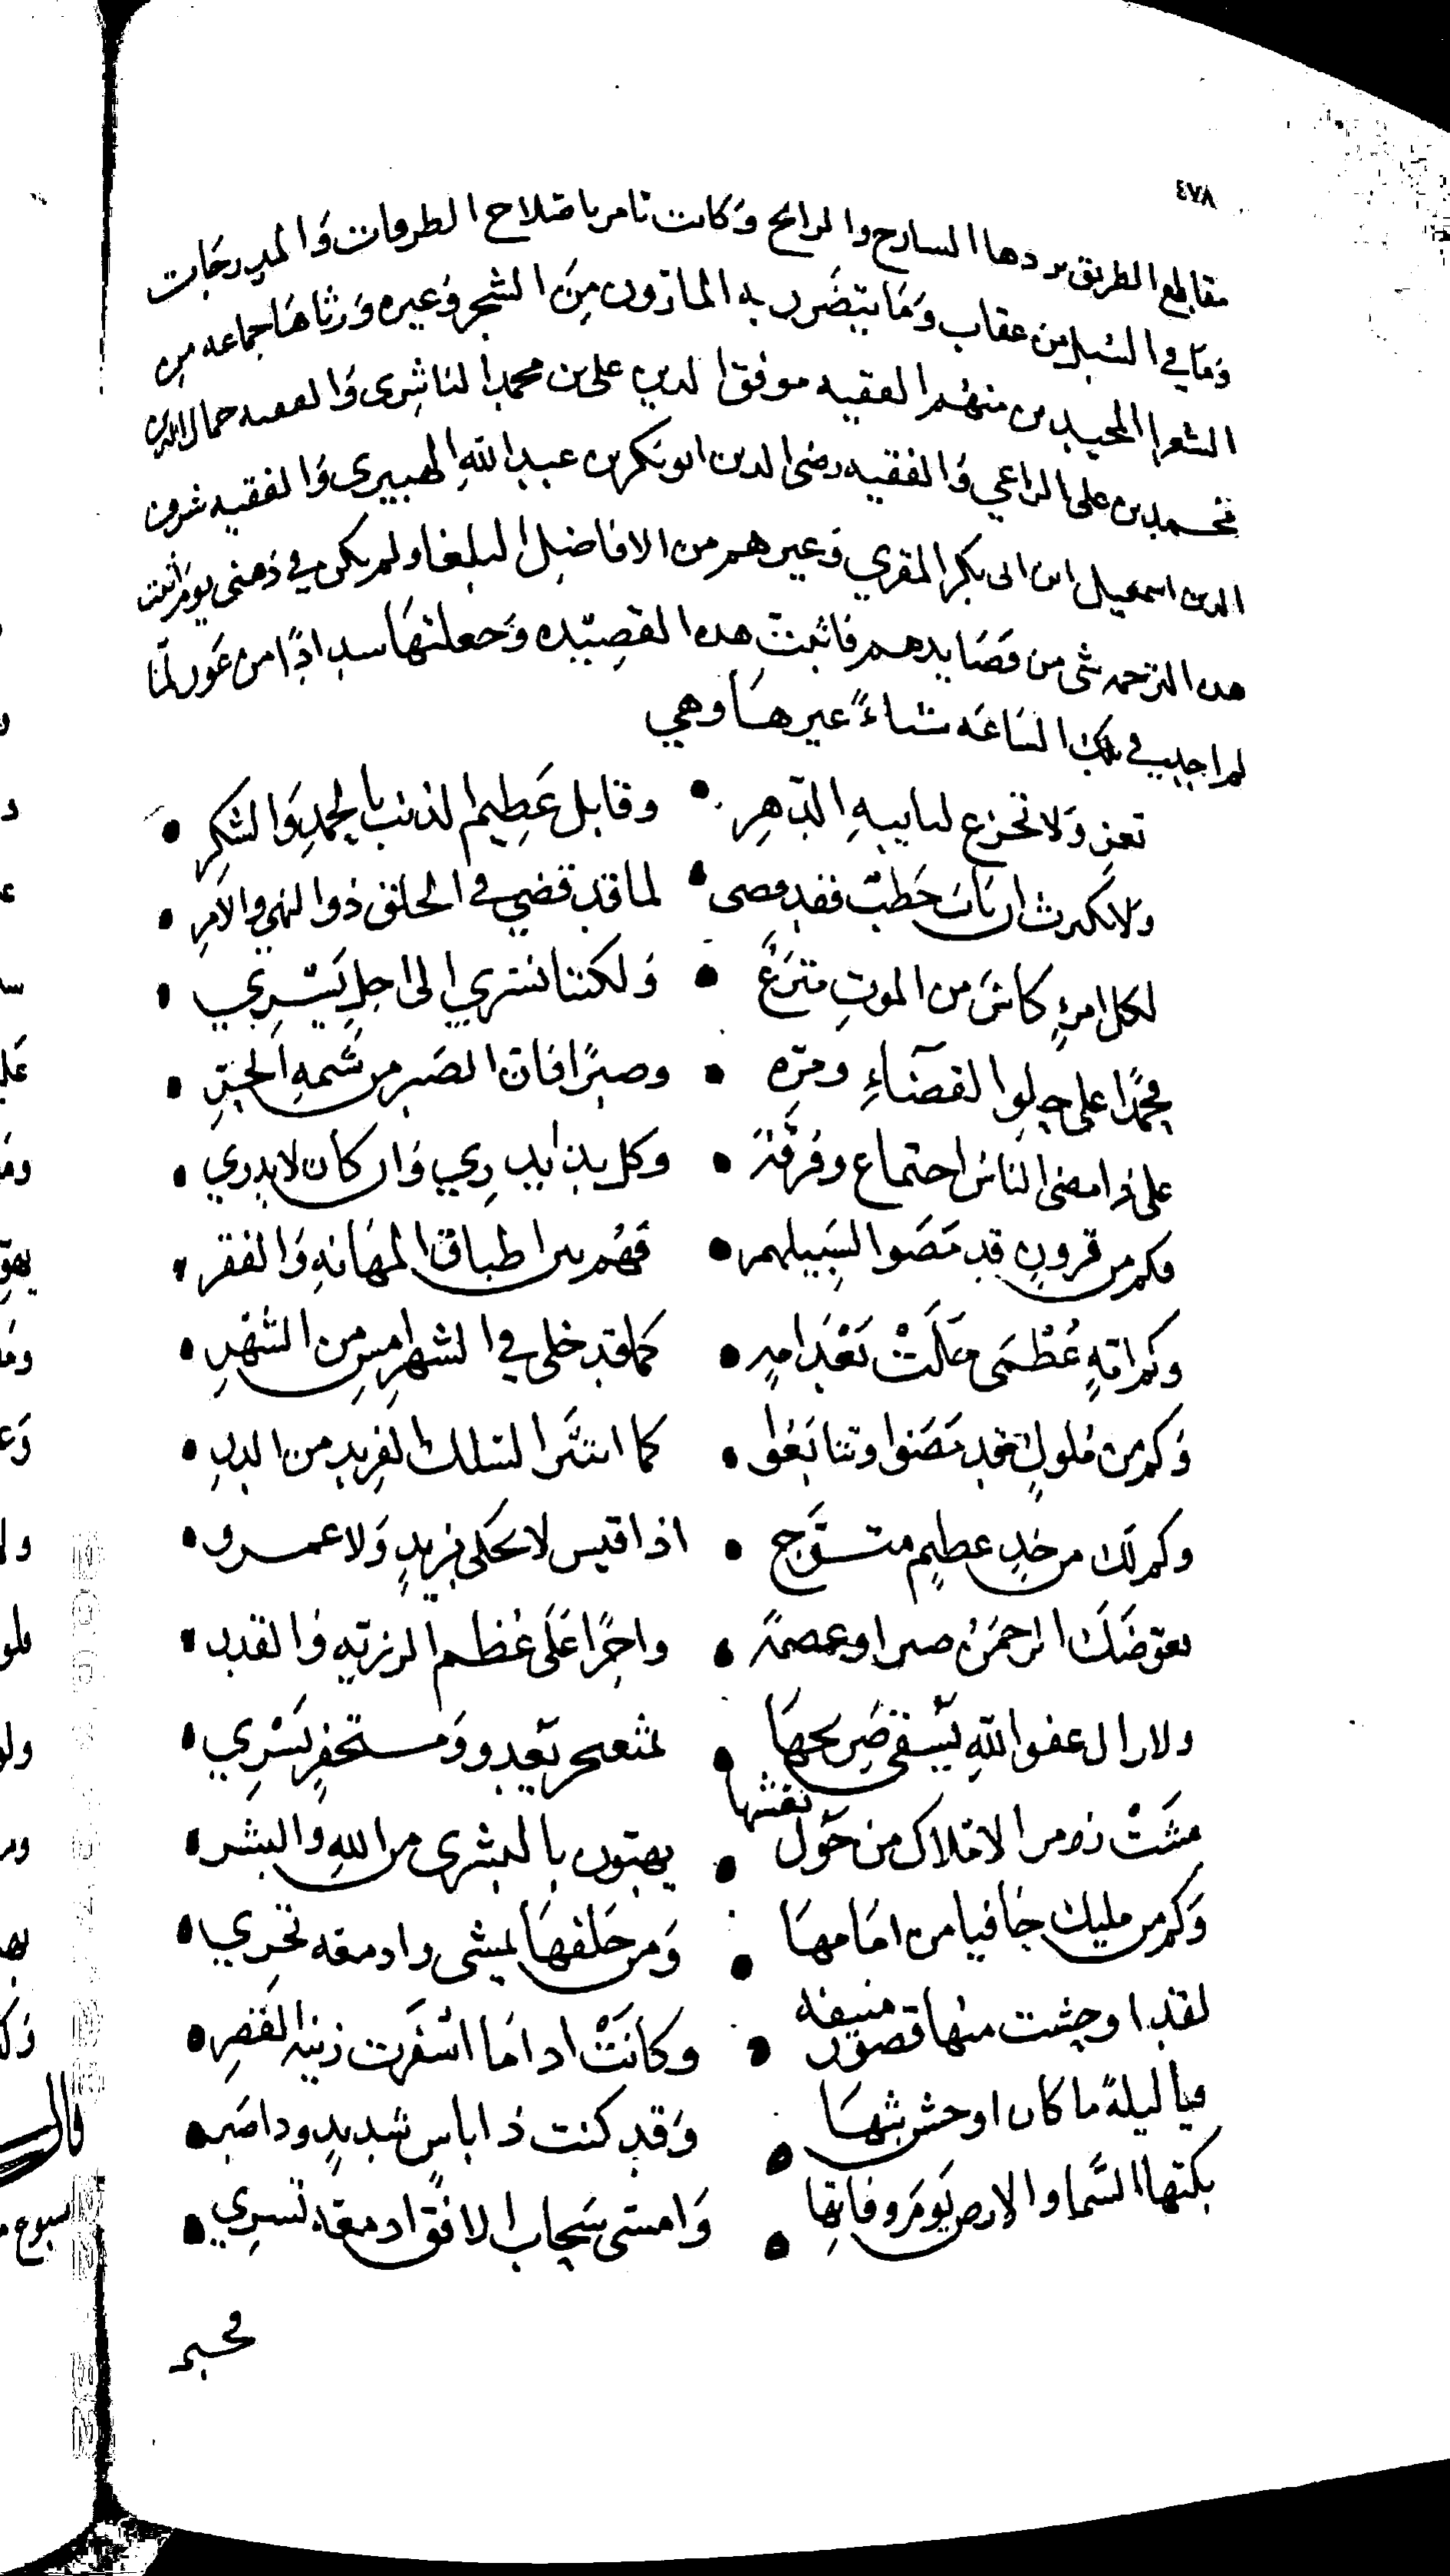 ٤٧٨
مقاطع الطريق يردها السارح والرايح وكانت تامر باصلاح الطرقات والمدرجات
وما في السبل من عقاب وما يتضرر به المارون من الشجر وغيره ورثاها جماعه من
الشعرا المجيدين منهم الفقيه موفق الدين علي بن محمد الناشرى والفقيه جمال الدين
محمد بن على الراعي والفقيه رضى الدين ابو بكر بن عبد الله الهبيرى والفقيه شرف
الدين اسمعيل ابن ابى بكر المقري وغيرهم من الافاضل البلغا ولم يكن في ذهنى يوم اثبت
هذه الترجمه شى من قصايدهم فاثبت هذه القصيده وجعلتها سدادًا من عور لمّا
لم اجد في تلك الساعه شياءً غيرها وهي
تعز ولا تجزع لنايبه الدهر • وقابل عظيم الذنب بالحمد والشكر •
ولا تكترث ان ناب خطب فقد قضى • لما قد قضي في الخلق ذو النهي والامر •
لكل امرءٍ كاس من الموت مترع • ولكننا نسري الى اجل يسري •
فحمدًا على حلو القضاء ومره • وصبرًا فان الصبر من شيمه الحر •
على ذا مضى الناس اجتماع وفرقة • وكل بذا يدري وان كان لا يدري •
فكم من قرون قد مضوا لسبيلهم • فهم بين اطباق المهانه والفقر •
وكم امةٍ عظمى خلت بعد امه • كما قد خلى في الشهر امس من الشهر •
وكم من ملوك قد مضوا وتتابعوا • كما انتثر السلك الفريد من الدر •
وكم لك من جد عظيم متوج • اذا قيس لا يحكى بزيد ولا عمرو •
يعوضك الرحمن صبرا وعصمة • واجرًا على عظم الرزيه والقدر •
ولا زال عفو الله يسقى ضريحها • بمثعنجر يغدو ومسحنفر يسري •
مشت زمر الاملاك من حول نعشها • يهنون بالبشرى من الله والبشر •
وكم من مليك حافيا من امامها • ومن خلفها يمشى وادمعه تجري •
لقد اوحشت منها قصور منيفه • وكانت اذا ما اسفرت زينه القصر •
فيا ليلة ما كان اوحش بثها • وقد كنت ذا باس شديد وذا صبر •
بكتها السما والارض يوم وفاتها • وامسى سحاب الافق ادمعه تسري •